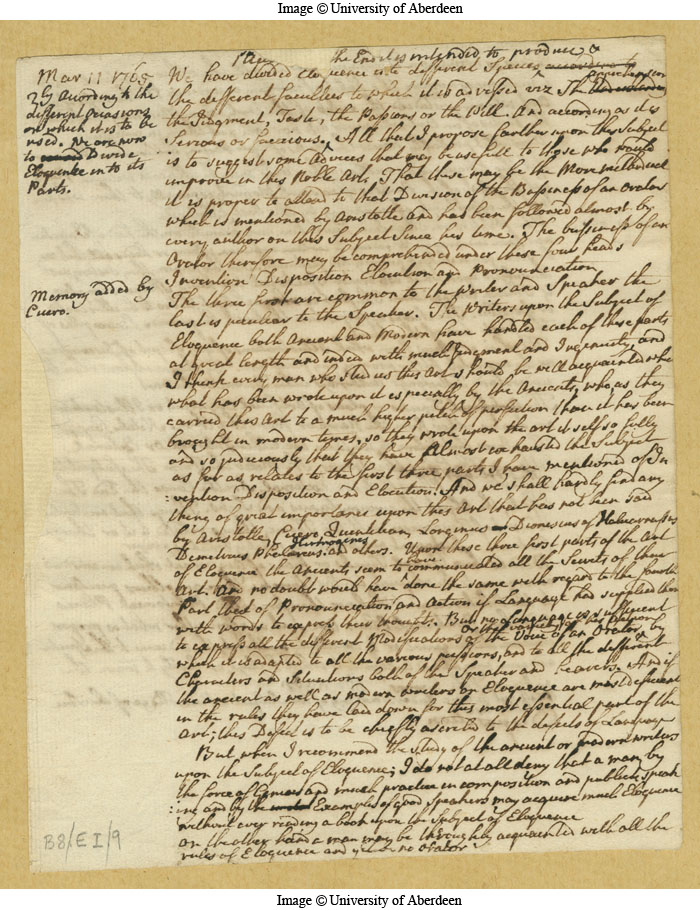 Image © University of Aberdeen
the End it is intended to produce &
Mar 11 1765
2ly According to the
different occasions
on which it is to be
used. We are now
to Divide
Eloquence into its
Parts.
Memory added by
Cicero.
We have divided Eloquence into different Species according to
the different faculties to which it is adressed viz The
the Judgment, Taste, the Passions or the Will. And according as it is
Serious or facecious. All that I propose farther upon this Subject
is to suggest some Advices that may be usefull to those who would
improve in this Noble Art. That these may be the More methodical
it is proper to attend to that Division of the Bussiness of an Orator
which is mentioned by Aristotle And has been followed almost by
every author on this Subject Since his time. The bussiness of an
Orator therefore may be comprehended under these four heads
Invention Disposition Elocution and Pronounciation
The three first are common to the Writer and Speaker the
last is peculiar to the Speaker. The Writers upon the Subject of
Eloquence both Ancient and Modern have handled each of these parts
at great length and indeed with much Judgment and Ingenuity, and
I think every man who studies this Art should be well acquainted with
what has been wrote upon it especially by the Ancients, who as they
carried this Art to a much higher pitch of perfection than it has been
brought in modern times, so they wrote upon the art it self so fully
and so judiciously that they have almost exhausted the Subject
as far as relates to the first three parts I have mentioned of In
vention Disposition and Elocution. And we shall hardly find any
thing of great importance upon this Art that has not been said
by Aristotle, Cicero, Quintilian, Longinus Dionesius of Halicarnassus
Hermogenes
Demetrius Phalereus and others. Upon these three first parts of the Art
of Eloquence the Ancients seem to have communicated all the Secrets of their
Art. And no doubt would have done the same with regard to the fourth
Part that of Pronounciation and Action if Language had supplied them
with words to express their thoughts. But no Language is sufficient
to express all the different Modifications of the Voice of an Orator by
which it is adapted to all the various passions, and to all the different
Characters and Situations both of the Speaker and hearers. And if
the ancient as well as modern writers on Eloquence are most deficient
in the rules they have laid down for this most essential part of the
Art; this Defect is to be chiefly ascribed to the defects of Language
But when I recommend the Study of the ancient or modern writers
upon the Subject of Eloquence; I do not at all deny that a man by
the force of Genius and much practice in composition and publick speak
ing and by the Examples of good Speakers may acquire much Eloquence
without ever reading a book upon the Subject of Eloquence
on the other hand a man may be throughly acquainted with all the
rules of Eloquence and yet be no orator
B8/EI/9
Image © University of Aberdeen